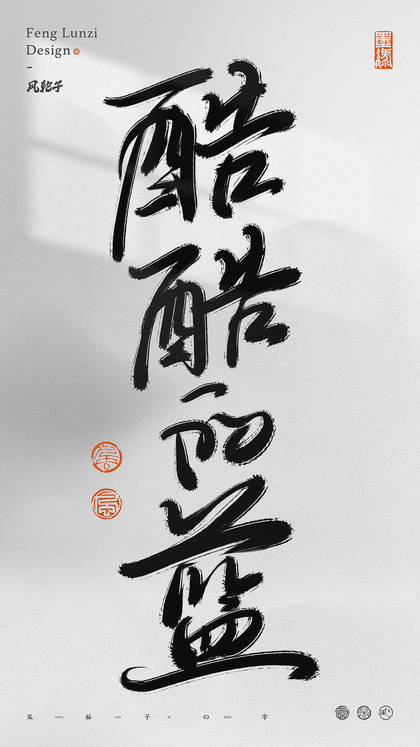 Feng Lunzi
Design©
-
风轮子
酷
酷
的
蓝
風 輪 子 の 字